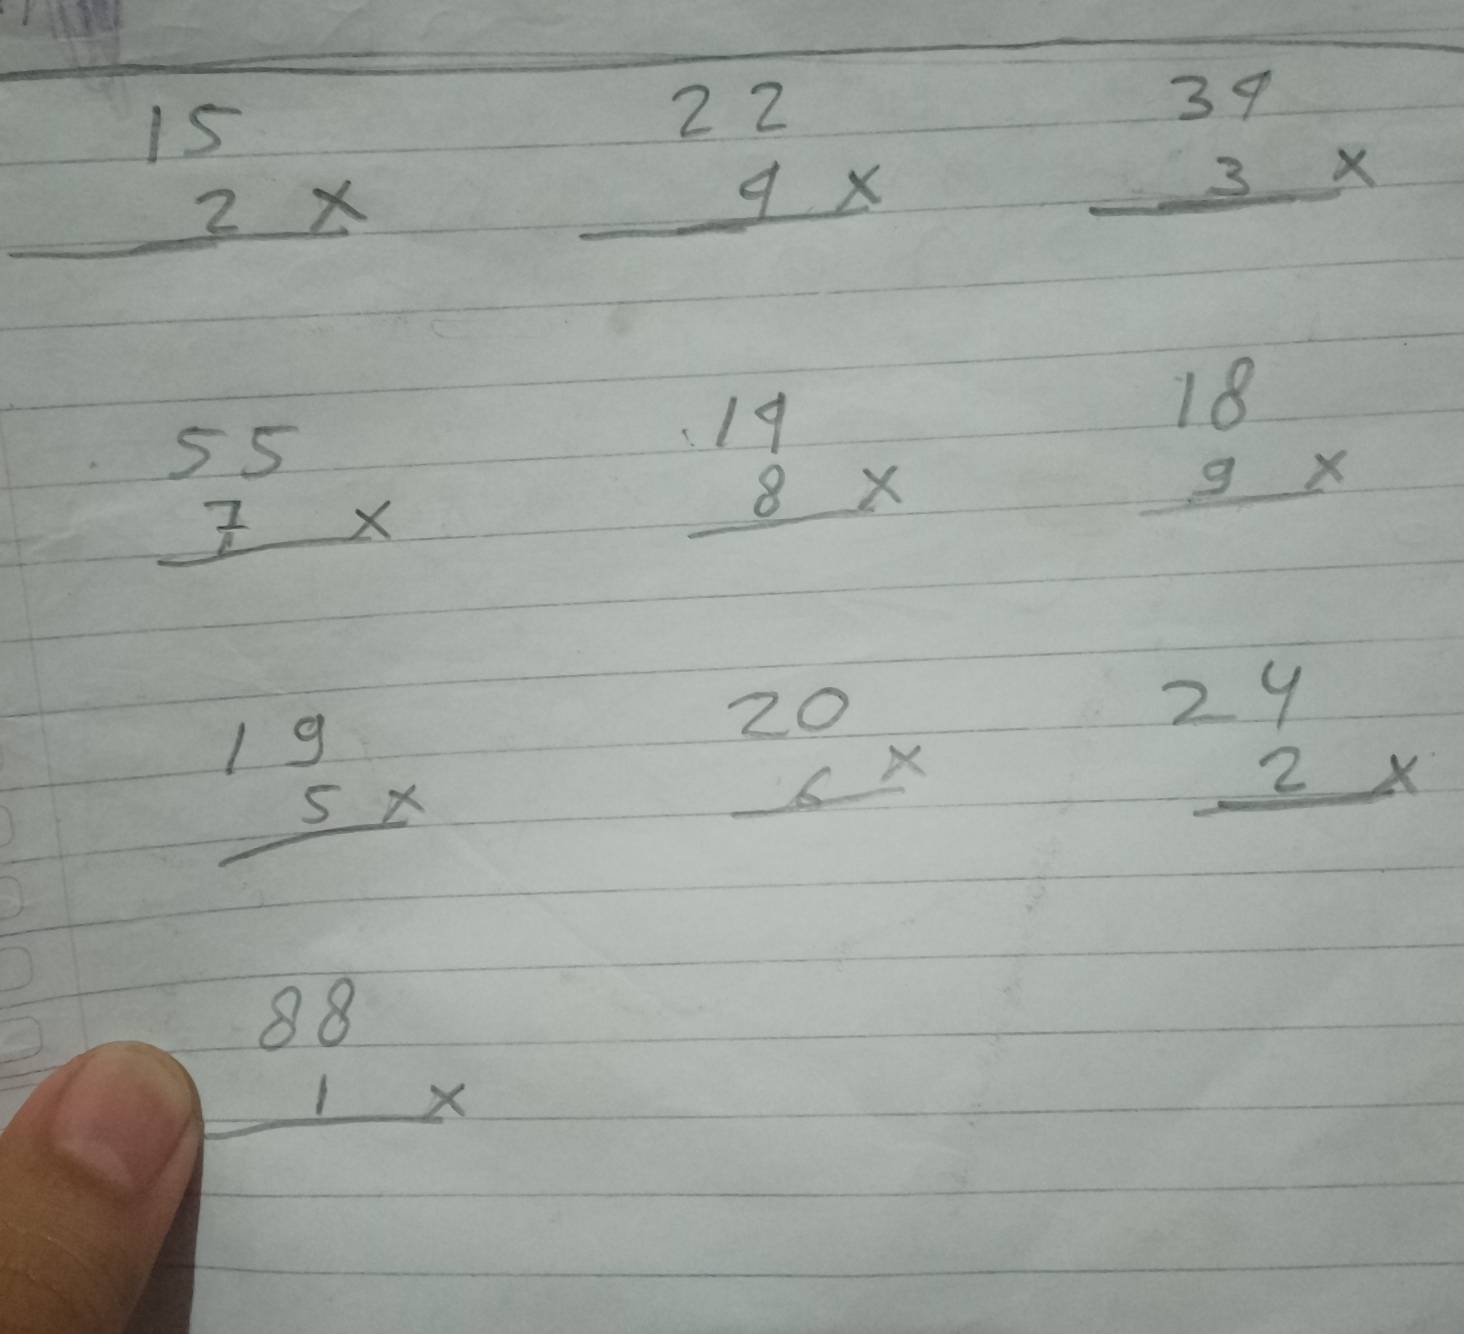 15 22 34
2 x 4 x 3 x
55 14 18
7 x 8 x 9 x
19 20 24
5 x 6 x 2 x
88
1 x